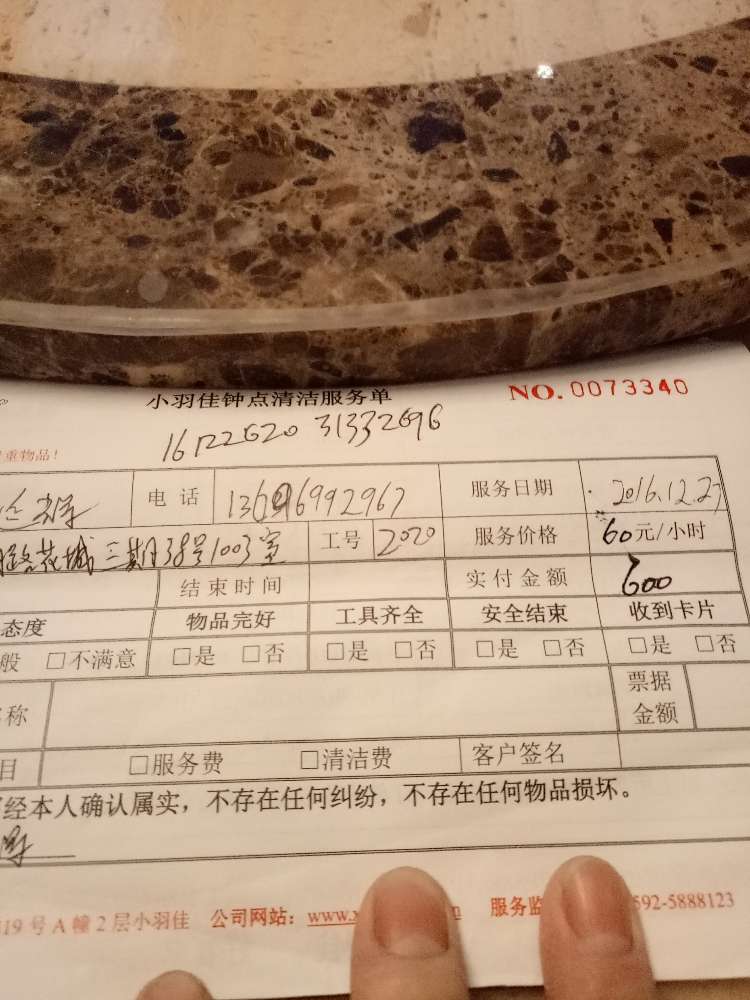 小羽佳钟点清洁服务单 NO. 0073340
重物品！
电话 服务日期 2016.12.27
花城三期38号1003室 工号 2020 服务价格 60元/小时
结束时间 实付金额 600
态度 物品完好 工具齐全 安全结束 收到卡片
般 □不满意 □是 □否 □是 □否 □是 □否 □是 □否
称 票据金额
目 □服务费 □清洁费 客户签名
经本人确认属实，不存在任何纠纷，不存在任何物品损坏。
19号A幢2层小羽佳 公司网站：www.x 服务监 592-5888123